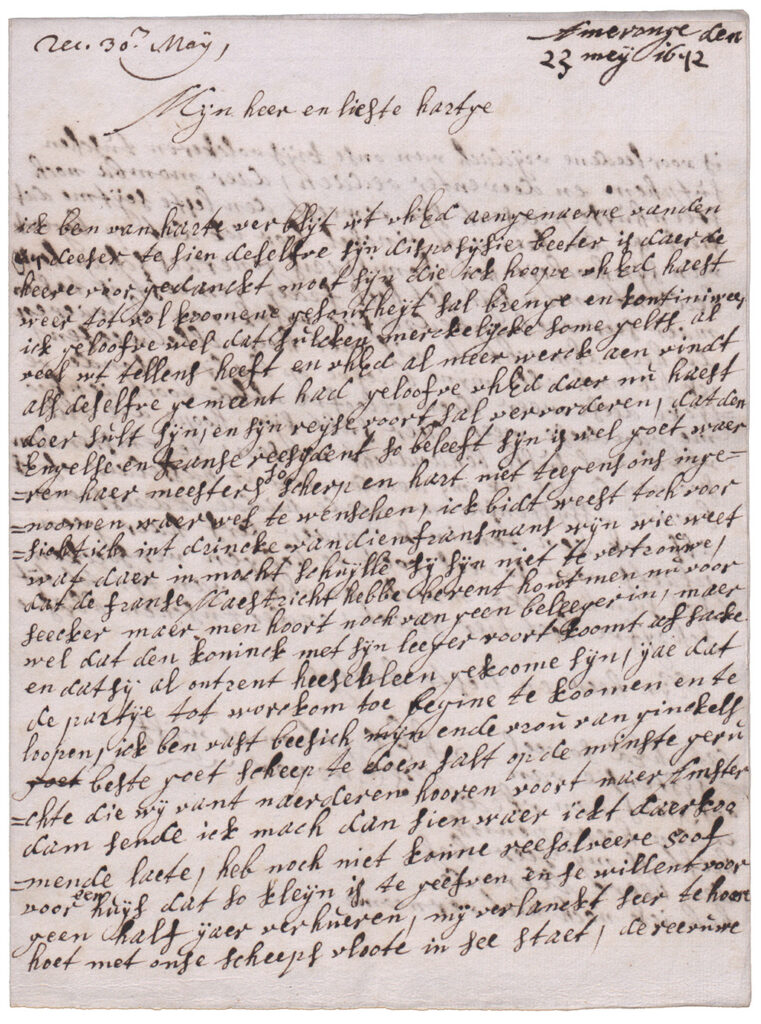 Rec. 30.n Maÿ,
Ameronge den
23 meÿ 1672
Mijn heer en liefste hartge
ick ben van harte verblijt wt uhEd aengenaeme vanden
deeser te sien deselfve sijn disposijsie beeter is daer de
heere voor gedanckt moet sijn die ick hoope uhEd haest
weer tot volkoomene gesontheijt sal brenge en kontiniwee,
ick geloofve wel dat sulcken merckelijcke some gelts al
veel wt tellens heeft en uhEd al meer werck aen vindt
als deselfve gemeent had geloofve uhEd daer nu haest
doer sult sijn, en sijn reijse voort sal vervorderen, dat den
Engelse en franse reesijdent so beleeft sijn is wel goet waer
=ren haer meesters so scherp en hart niet teegens ons inge=
=noomen, waer wes te wenschen, ick bidt weest toch voor
=sichtich int drincke van dien fransmans wijn wie weet
wat daer in mocht schuijlle sij sijn niet te vertrouwe,
dat de franse Maestricht hebbe berent hout men nu voor
seecker maer men hoort noch van geen beleegerin, maer
wel dat den koninck met sijn leeger voort koomt af sacke
en dat sij al ontrent heese kleen gekoome sijn, jae dat
de partije tot worckom toe begine te koomen en te
loopen, ick ben vast beesich mijn ende vrou van ginckels
beste goet scheep te doen salt op de minste geru
=chte die wij vant naerderen hooren voort naer Amster
dam sende ick mach dan sien waer ickt daer koo
=mende laete, heb noch niet konne reesolveere 500f
voor een huijs dat so kleijn is te geefven en se willent voor
geen half jaer verhueren, mij verlanckt seer te hoore
hoet met onse scheeps vloote in see staet, de reeuwe